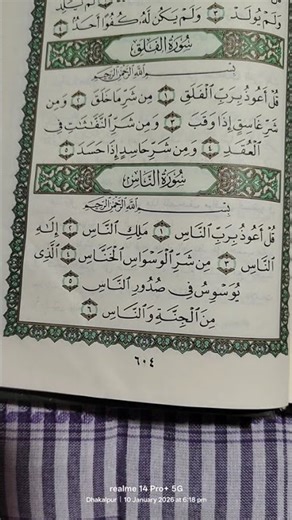 وَلَمْ يُولَدْ ٣ وَلَمْ يَكُن لَّهُۥ كُفُوًا أَحَدٌۢ ٤
سُورَةُ الْفَلَقِ
بِسْمِ اللَّهِ الرَّحْمَٰنِ الرَّحِيمِ
قُلْ أَعُوذُ بِرَبِّ الْفَلَقِ ١ مِن شَرِّ مَا خَلَقَ ٢ وَمِن
شَرِّ غَاسِقٍ إِذَا وَقَبَ ٣ وَمِن شَرِّ النَّفَّٰثَٰتِ فِى
الْعُقَدِ ٤ وَمِن شَرِّ حَاسِدٍ إِذَا حَسَدَ ٥
سُورَةُ النَّاسِ
بِسْمِ اللَّهِ الرَّحْمَٰنِ الرَّحِيمِ
قُلْ أَعُوذُ بِرَبِّ النَّاسِ ١ مَلِكِ النَّاسِ ٢ إِلَٰهِ
النَّاسِ ٣ مِن شَرِّ الْوَسْوَاسِ الْخَنَّاسِ ٤ الَّذِى
يُوَسْوِسُ فِى صُدُورِ النَّاسِ ٥
مِنَ الْجِنَّةِ وَالنَّاسِ ٦
٦٠٤
realme 14 Pro+ 5G
Dhakalpur | 10 January 2026 at 6:18 pm